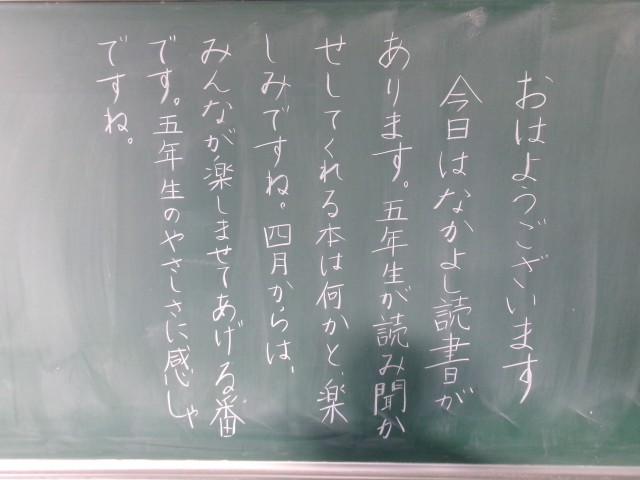 おはようございます
今日はなかよし読書が
あります。五年生が読み聞か
せしてくれる本は何かと、楽
しみですね。四月からは、
みんなが楽しませてあげる番
です。五年生のやさしさに感しゃ
ですね。